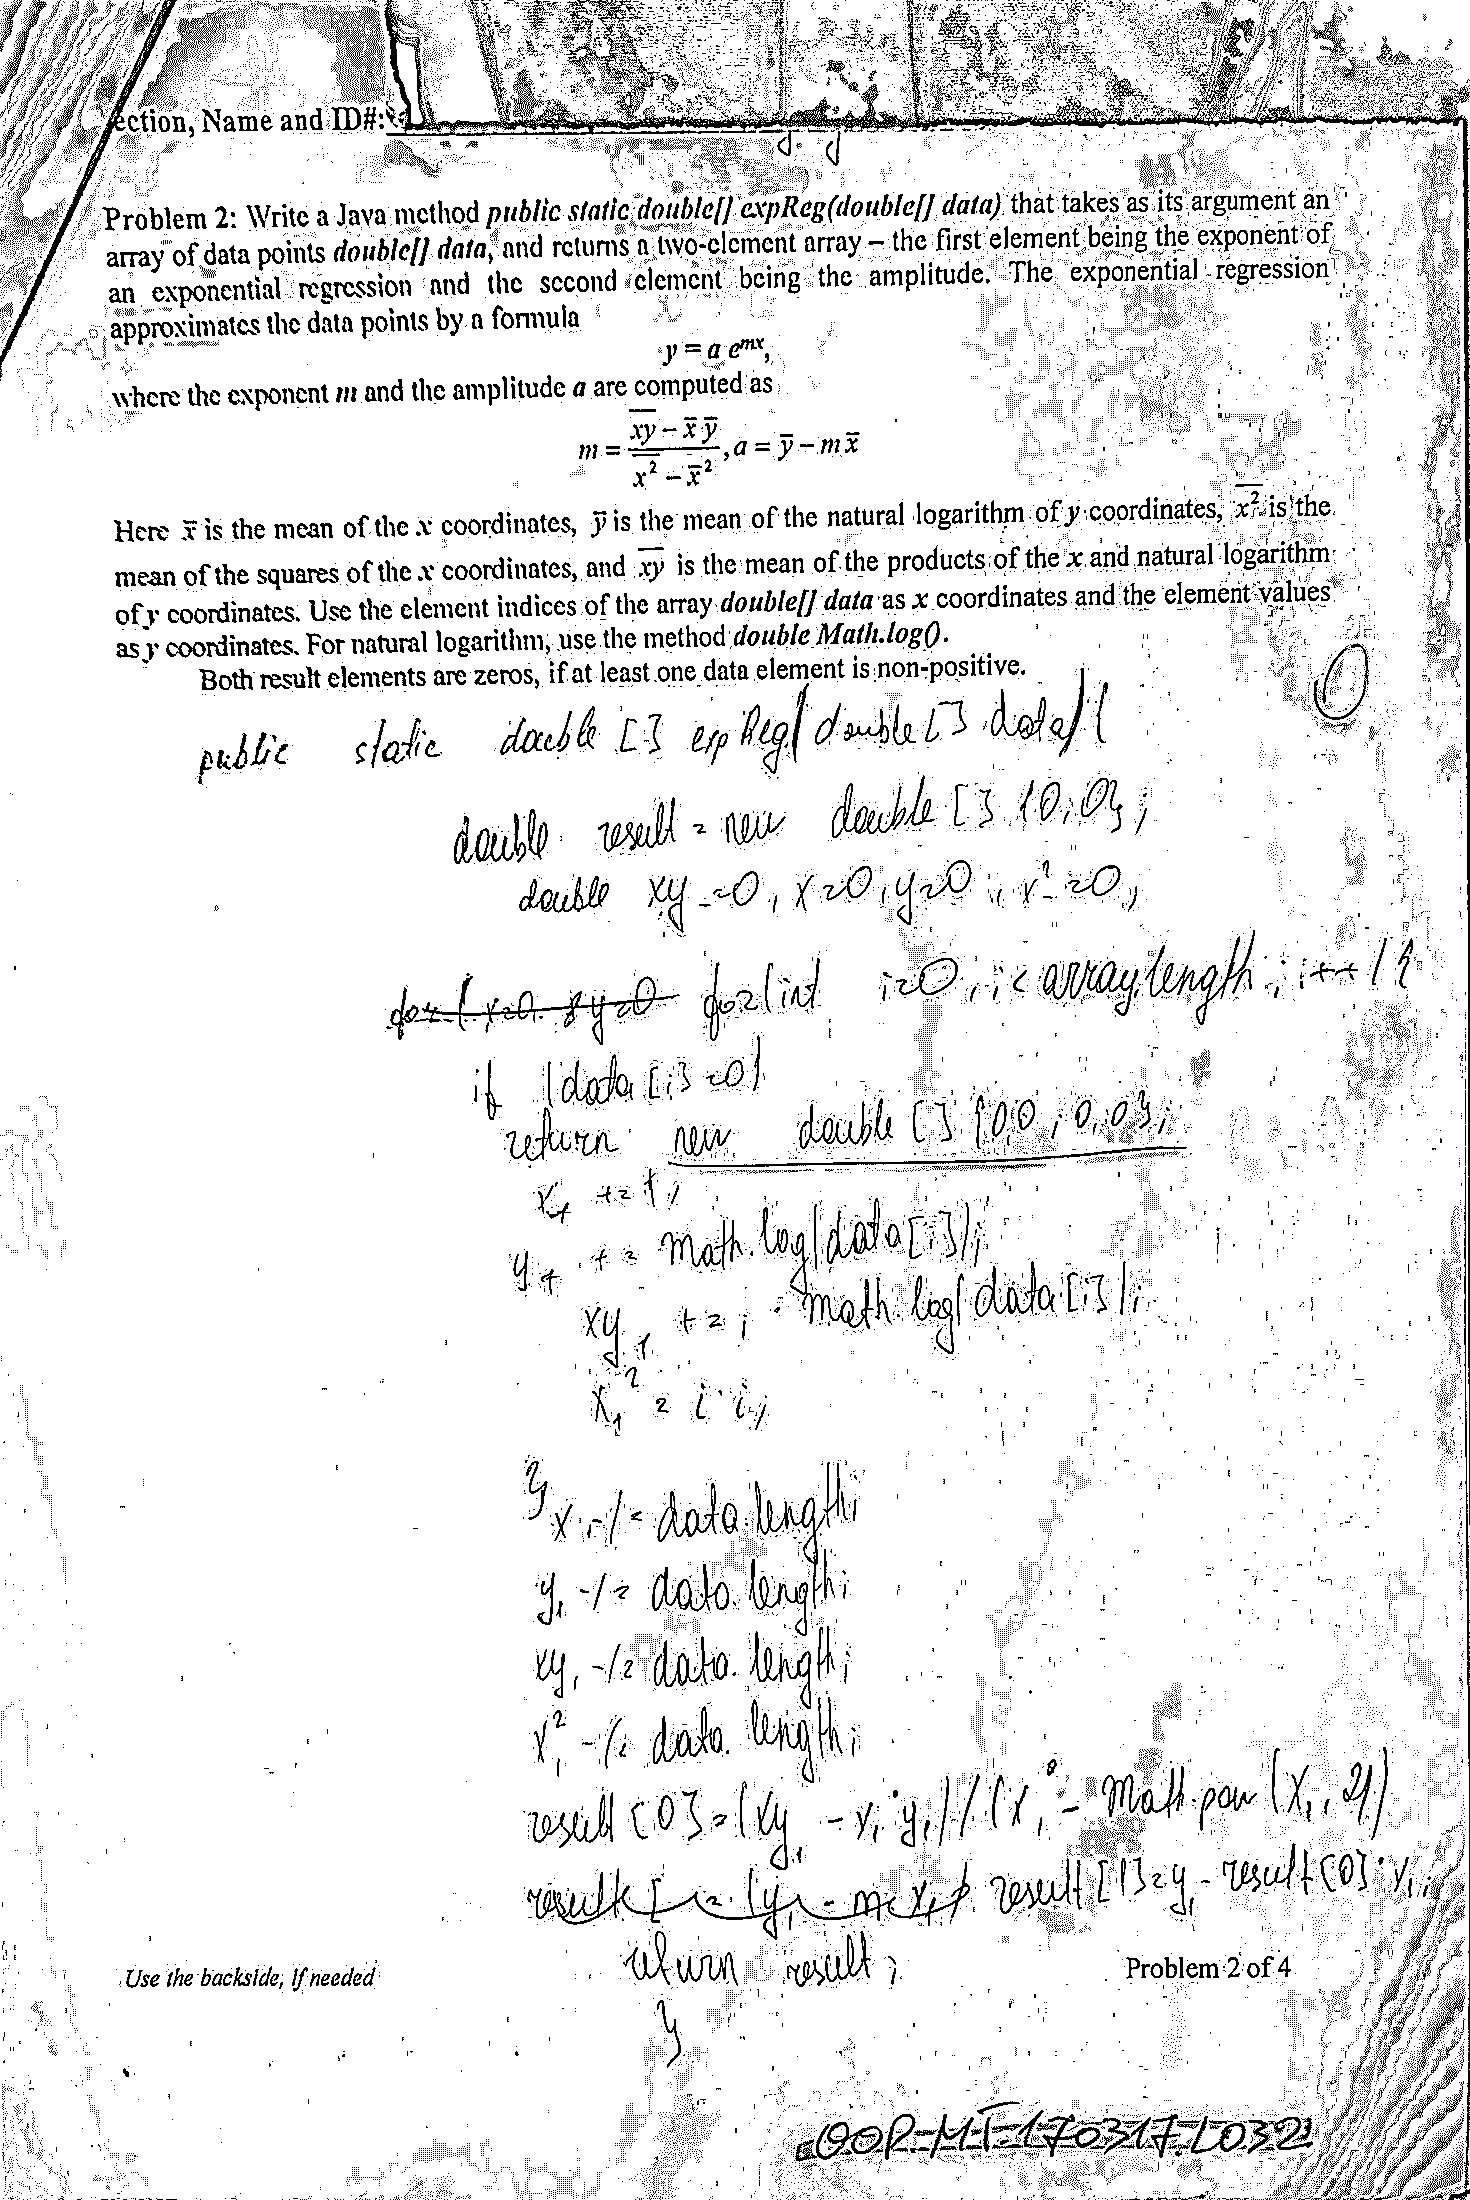 ection, Name and ID#:
Problem 2: Write a Java method public static double[] expReg(double[] data) that takes as its argument an
array of data points double[] data, and returns a two-element array – the first element being the exponent of
an exponential regression and the second element being the amplitude. The exponential regression
approximates the data points by a formula
y = a e^{mx},
where the exponent m and the amplitude a are computed as
m = \frac{\overline{xy} - \bar{x}\bar{y}}{\overline{x^2} - \bar{x}^2}, a = \bar{y} - m\bar{x}
Here x̄ is the mean of the x coordinates, ȳ is the mean of the natural logarithm of y coordinates, \overline{x^2} is the
mean of the squares of the x coordinates, and \overline{xy} is the mean of the products of the x and natural logarithm
of y coordinates. Use the element indices of the array double[] data as x coordinates and the element values
as y coordinates. For natural logarithm, use the method double Math.log().
Both result elements are zeros, if at least one data element is non-positive.
0
public static double [] expReg(double[] data){
double result = new double []{0,0};
double xy_=0, x=0, y=0, x²=0;
for(int i=0; i< array.length; i++){
if (data[i]=0)
return new double []{0.0, 0.0};
x₁ += i;
y₁ += math.log(data[i]);
xy₁ += i · math.log(data[i]);
x₁² = i·i;
}
x₁ -/= data.length;
y₁ -/= data.length;
xy₁ -/= data.length;
x₁² -/= data.length;
result[0]=(xy₁ - x₁·y₁)/(x₁² - Math.pow(x₁, 2)
result[1]=y₁ - result[0]·x₁;
return result;
}
Use the backside, if needed
Problem 2 of 4
OOP-MT-170317-L032